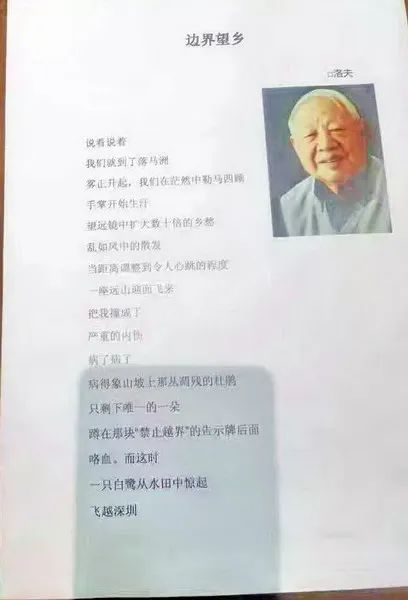 边界望乡
□洛夫
说着说着
我们就到了落马洲
雾正升起，我们在茫然中勒马四顾
手掌开始生汗
望远镜中扩大数十倍的乡愁
乱如风中的散发
当距离调整到令人心跳的程度
一座远山迎面飞来
把我撞成了
严重的内伤
病了病了
病得象山坡上那丛凋残的杜鹃
只剩下唯一的一朵
蹲在那块“禁止越界”的告示牌后面
咯血。而这时
一只白鹭从水田中惊起
飞越深圳